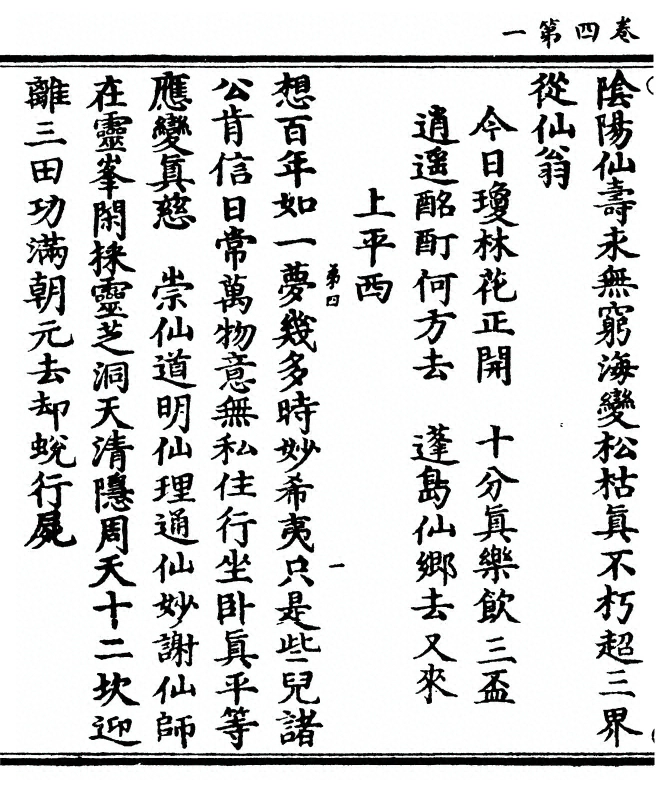 卷四第一
陰陽仙壽永無窮海變松枯眞不朽超三界
從仙翁
今日瓊林花正開　十分眞樂飲三盃
逍遥酩酊何方去　蓬島仙鄉去又來
上平西
第四　一
想百年如一夢幾多時妙希夷只是些兒諸
公肯信日常萬物意無私住行坐卧眞平等
應變眞慈　崇仙道明仙理通仙妙謝仙師
在靈峯閑採靈芝洞天清隱周天十二坎迎
離三田功滿朝元去却蛻行屍